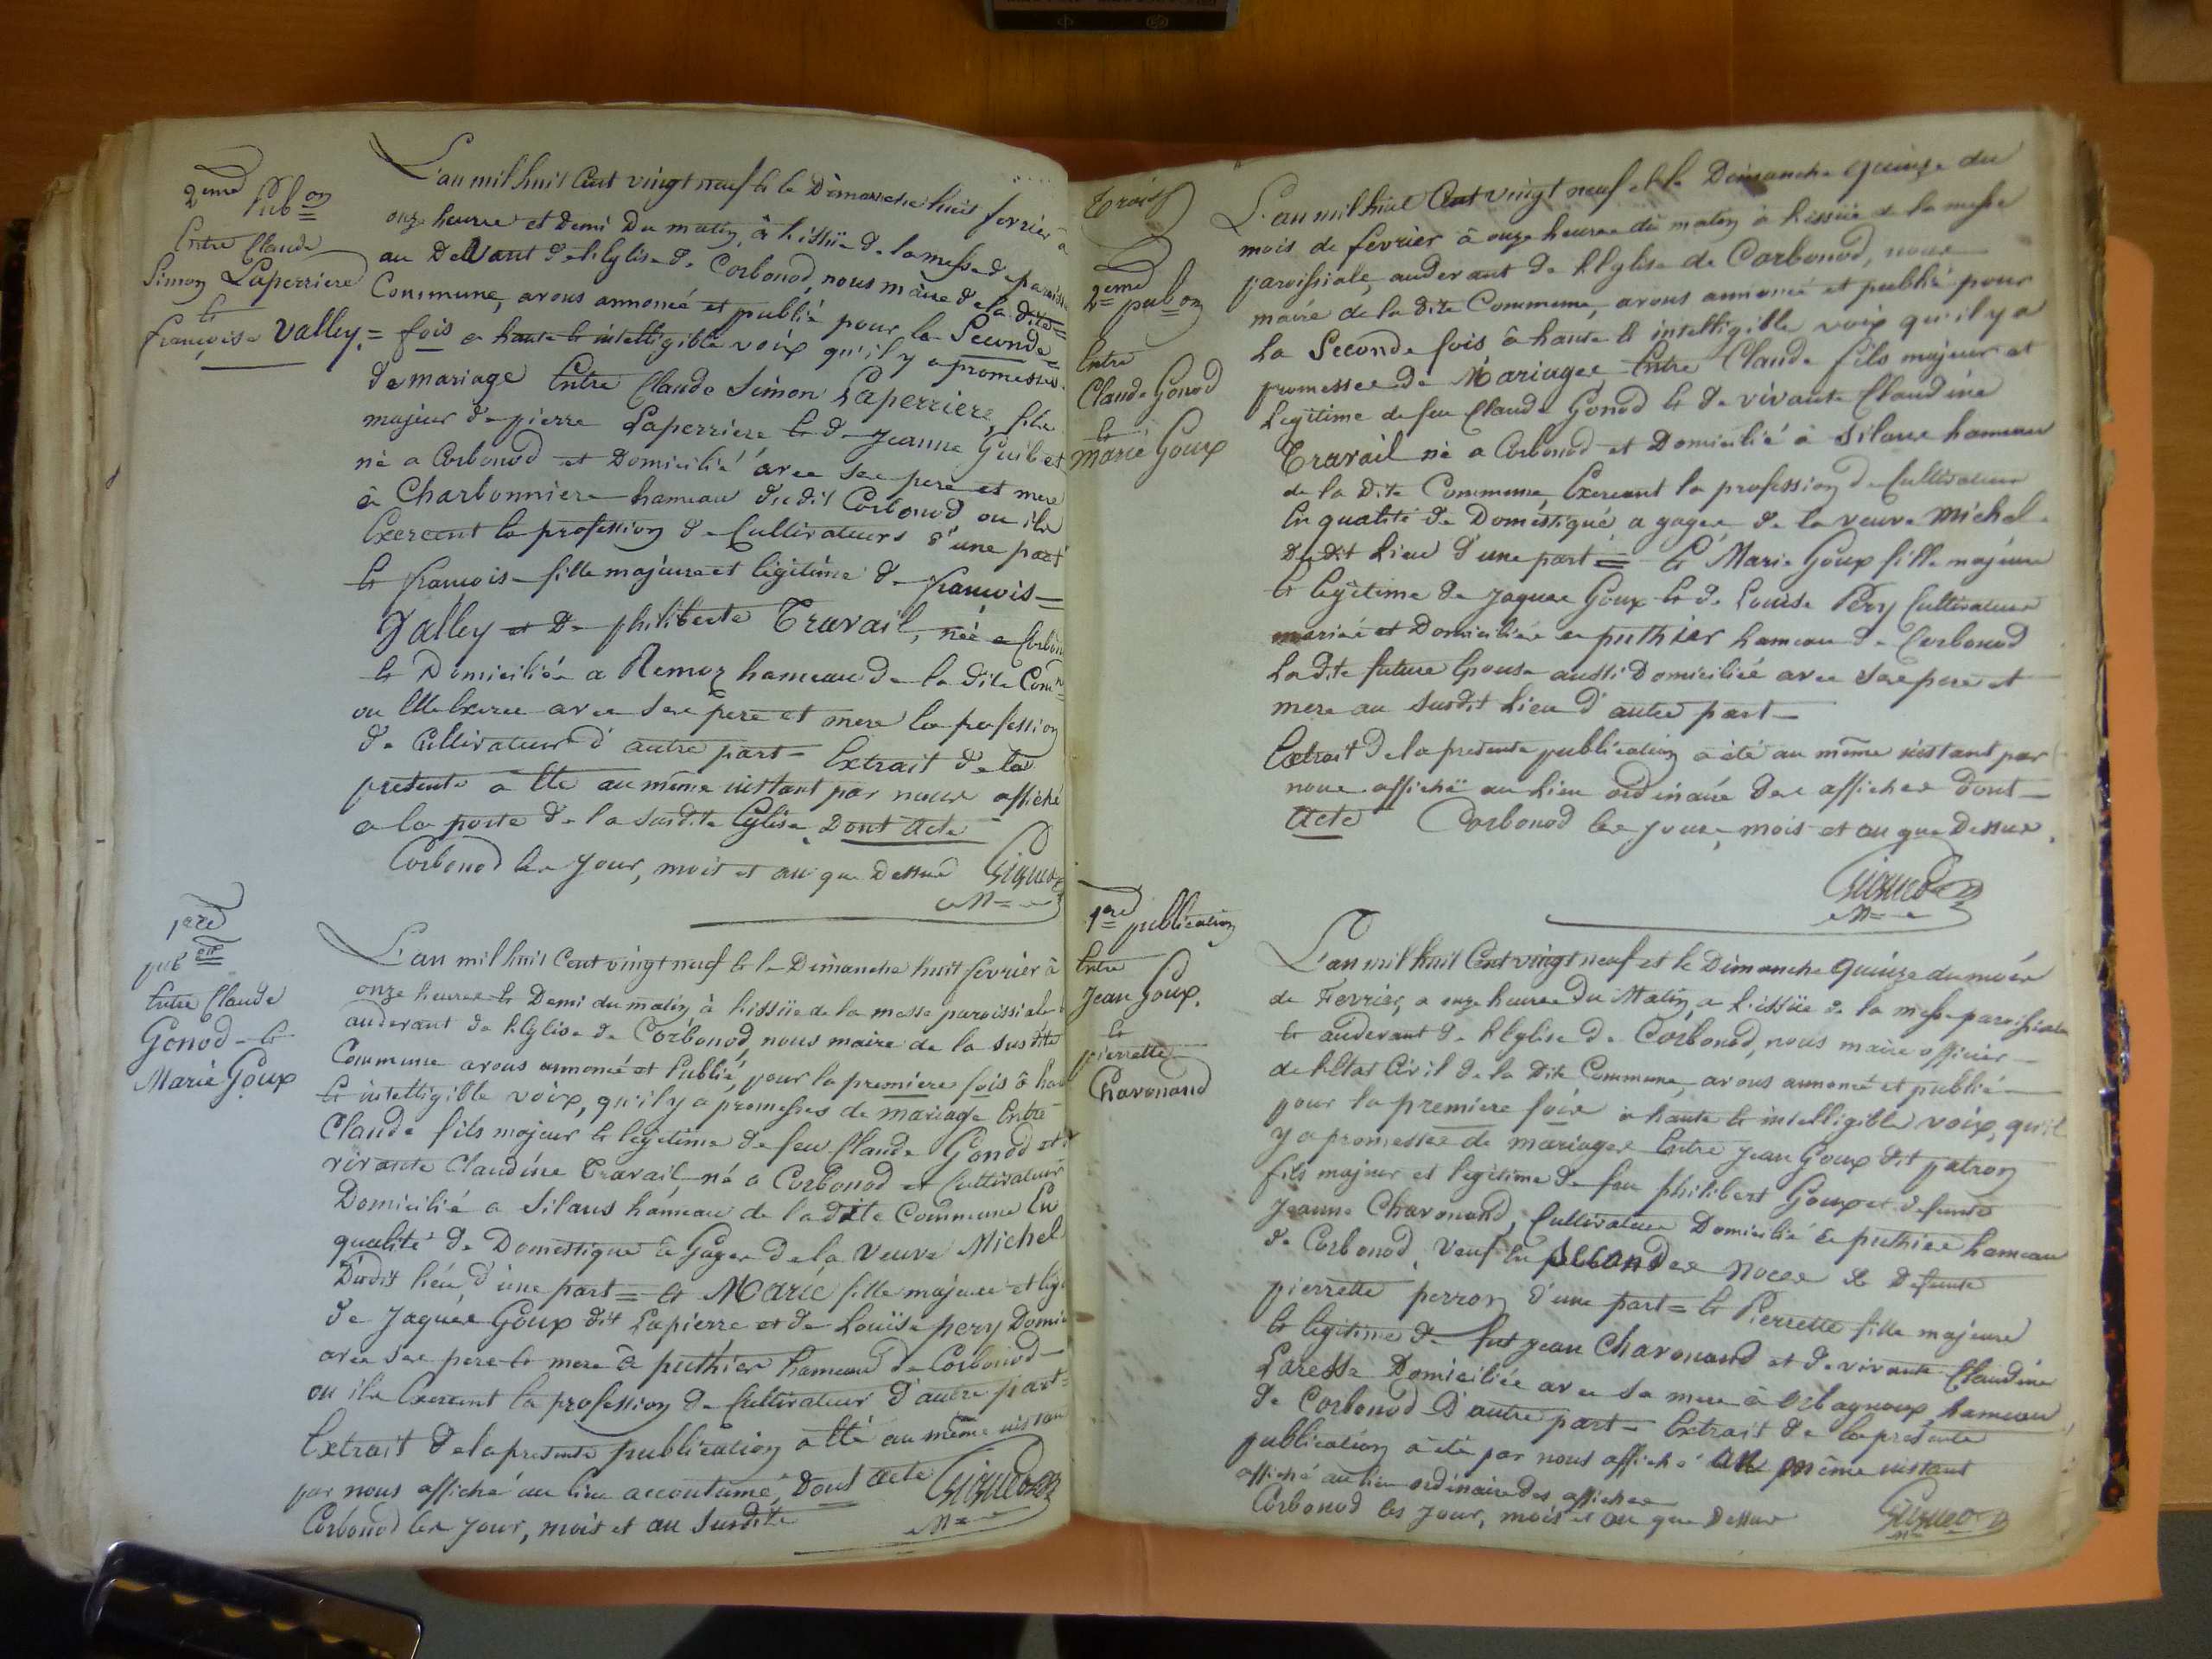 2eme
Pub on
Entre Claude
Simon Laperriere
et
françoise Valley.=
L'an mil huit Cent vingt neuf et le Dimanche huit fevrier à
onze heures et Demi Du matin, à l'issüe de la messe de paroisse
au DeVant de l'Eglise de Corbonod, nous maire de la dite=
Commune, avons annoncé et publié pour la Seconde=
fois a haute et intelligible voix qu'il y a promesses
de mariage Entre Claude Simon Laperriere, fils
majeur de pierre Laperriere et de Jeanne Guibet
né a Corbonod et Domicilié avec ses pere et mere
à Charbonniere hameau du dit Corbonod ou ils
Exercent la profession de Cultivateurs d'une part
et françois fille majeure et légitime de françois=
Valley et De philiberte Travail, née a Corbonod
et Domiciliée a Remoz hameau de la dite Comne
ou Elle Exerce avec ses pere et mere la profession
de Cultivateur d'autre part= Extrait de la
presente a Ete au même instant par nous affiché
a la porte de la susdite Eglise, Dont Acte
Corbonod les Jour, mois et an que Dessus
1ere
pub on
Entre Claude
Gonod et
Marie Goux
L'an mil huit Cent vingt neuf et le Dimanche huit fevrier à
onze heures et Demi du matin, à l'issüe de la messe paroissiale
audevant de l'Eglise de Corbonod, nous maire de la susdite
Commune avons annoncé et Publié, pour la premiere fois à haute
et intelligible voix, qu'il y a promesses de mariage Entre
Claude fils majeur et legitime de feu Claude Gonod et de
vivante Claudine Travail, né a Corbonod et Cultivateur
Domicilié a Silans hameau de la dite Commune En
qualité de Domestique à Gages de la Veuve Michel
Dudit lieu, d'une part= et Marie fille majeure et legi
de Jaques Goux dit Lapierre et de Louise pery Domici
avec ses pere et mere à puthier hameau de Corbonod
ou ils Exercent la profession de Cultivateur d'autre part=
Extrait de la presente publication a Eté au même instant
par nous affiché au lieu accoutumé, Dont Acte
Corbonod les Jour, mois et an Susdits
Trois
2eme
pub on
Entre
Claude Gonod
et
Marie Goux
L'an mil huit Cent vingt neuf et le Dimanche quinze du
mois de fevrier à onze heures du matin à l'issüe de la messe
paroissiale, audevant de l'Eglise de Corbonod, nous
maire de la dite Commune, avons annoncé et publié pour
la Seconde fois à haute et intelligible voix qu'il y a
promesses de Mariages Entre Claude fils majeur et
Legitime de feu Claude Gonod et de vivante Claudine
Travail né a Corbonod et Domicilié à Silans hameau
de la Dite Commune, Exerceant la profession de Cultivateur
En qualité de Doméstique, a gages de la veuve Michel
Dudit Lieu d'une part= et Marie Goux fille majeure
et legitime de Jaques Goux et de Louise Péry Cultivateurs
mariés et Domiciliés a puthier hameau de Corbonod
La dite future Epouse aussi Domiciliée avec ses pere et
mere au susdit Lieu d'autre part
Extrait de la presente publication a été au même instant par
nous affiché au Lieu ordinaire des affiches dont
Acte Corbonod les Jour, mois et an que Dessus.
1ere publication
Entre
Jean Goux.
et
pierrette
Charonand
L'an mil huit Cent vingt neuf et le Dimanche quinze du mois
de Fevrier, a onze heures Du Matin, a l'issüe de la messe paroissiale
et audevant de l'Eglise de Corbonod, nous maire officier
de l'Etat Civil de la Dite Commune, avons annoncé et publié
pour la premiere fois a haute et intelligible voix, qu'il
y a promesses de mariages Entre Jean Goux dit patron
fils majeur et legitime de feu philibert Goux et defunte
Jeanne Charonand, Cultivateur Domicilié à puthier hameau
de Corbonod, Veuf En secondes Noces de Defunte
pierrette perron d'une part= et Pierrette fille majeure
et legitime de fut jean Charonand et de vivante Claudine
Laressa Domiciliée avec sa mere à Orbagnoux hameau
de Corbonod D'autre part= Extrait de la presente
publication a été par nous affiché au même instant
affiché au lieu ordinaire des affiches
Corbonod les Jour, mois et an que Dessus